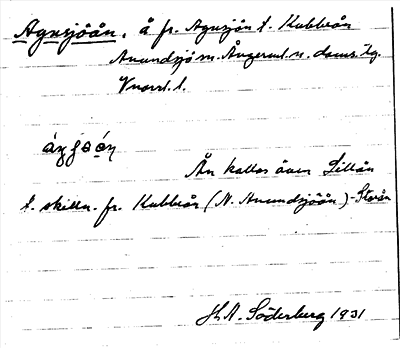 Agnsjöån, å fr. Agnsjön t. Kubbeån
Anundsjö sn. Ångerml. n. doms.
V norrl. l.
Ån kallas även Lillån
t. skilln. fr. Kubbeån (N. Anundsjöån) - Storån
H. A. Söderberg 1931